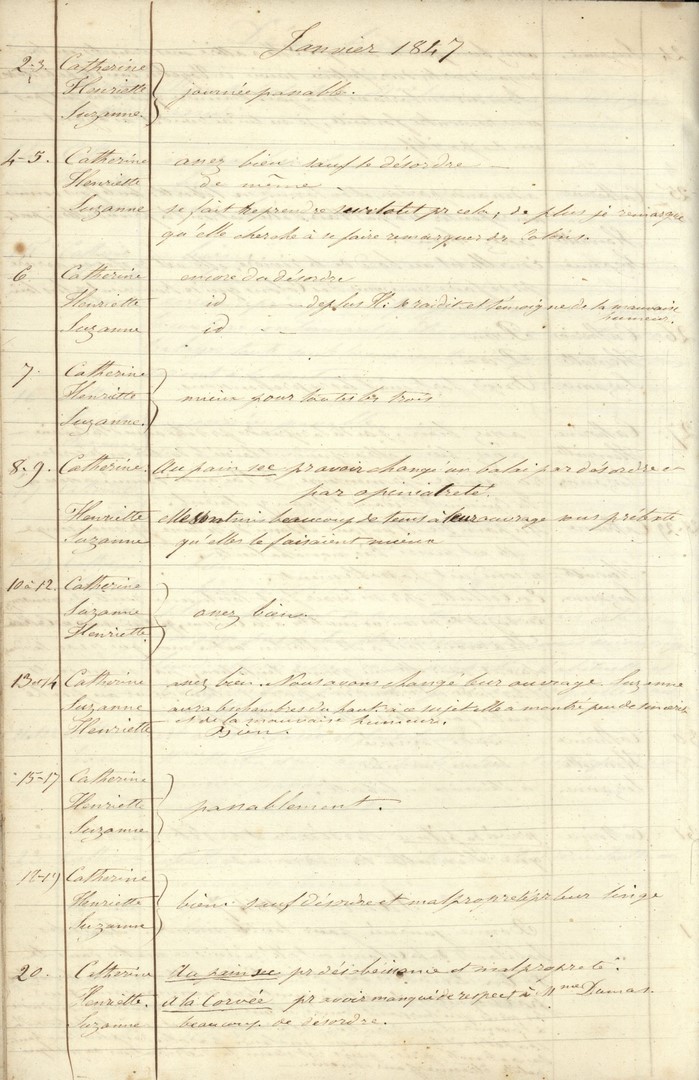 Janvier 1847
2-3. Catherine
Henriette } journée passable.
Suzanne.
4-5. Catherine assez bien sauf le désordre
Henriette de même
Suzanne se fait reprendre pr cela, de plus je remarque
qu'elle cherche à se faire remarquer des
6 Catherine encore du désordre
Henriette id de plus H: se raidit et témoigne de la mauvaise
humeur.
Suzanne id
7. Catherine
Henriette } mieux pour toutes les trois
Suzanne.
8-9. Catherine. Au pain sec pr avoir changé un balai par désordre et
par opiniatreté.
Henriette elles ont mis beaucoup de tems à leur ouvrage sous prétexte
Suzanne qu'elles le faisaient mieux
10 à 12. Catherine
Suzanne } assez bien.
Henriette
13 et 14 Catherine assez bien. Nous avons changé leur ouvrage Suzanne
Suzanne aura les chambres du haut: à ce sujet elle a montré peu de sincérité
et de la mauvaise humeur.
Henriette Bien.
15-17 Catherine
Henriette } passablement.
Suzanne
18-19 Catherine
Henriette } bien sauf désordre et malpropreté pr leur linge
Suzanne
20. Catherine Au pain sec pr désobéissance et malpropreté.
Henriette. A la Corvée pr avoir manqué de respect à Mme Dumas.
Suzanne beaucoup de désordre.